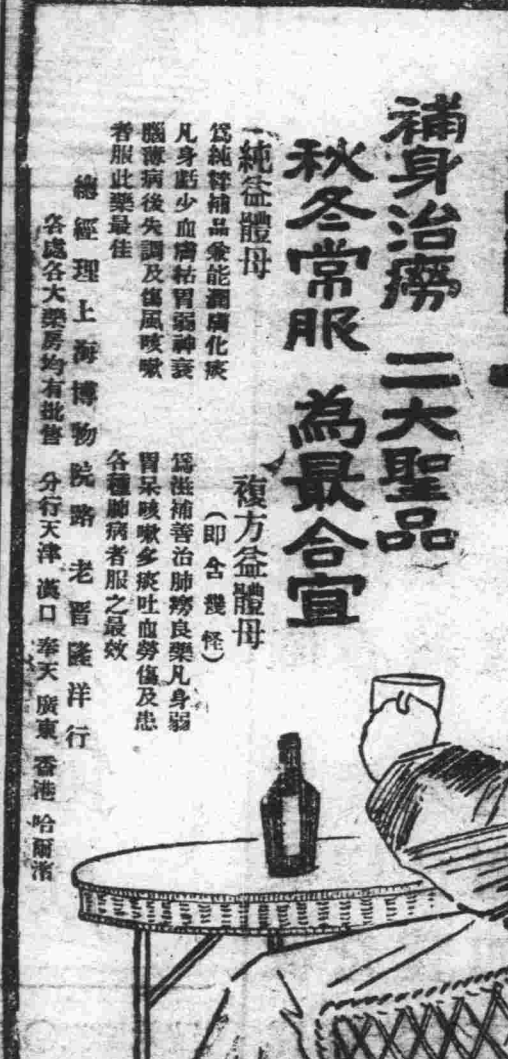 補身治癆 二大聖品
秋冬常服 為最合宜
純益體母
為純粹補品兼能潤膚化痰
凡身虧少血膚枯胃弱神衰
腦薄病後失調及傷風咳嗽
者服此藥最佳
複方益體母
(即含幾怪)
為滋補善治肺癆良藥凡身弱
胃呆咳嗽多痰吐血勞傷及患
各種肺病者服之最效
總經理上海博物院路 老晋隆洋行
各處各大藥房均有批售 分行天津 漢口 奉天 廣東 香港 哈爾濱